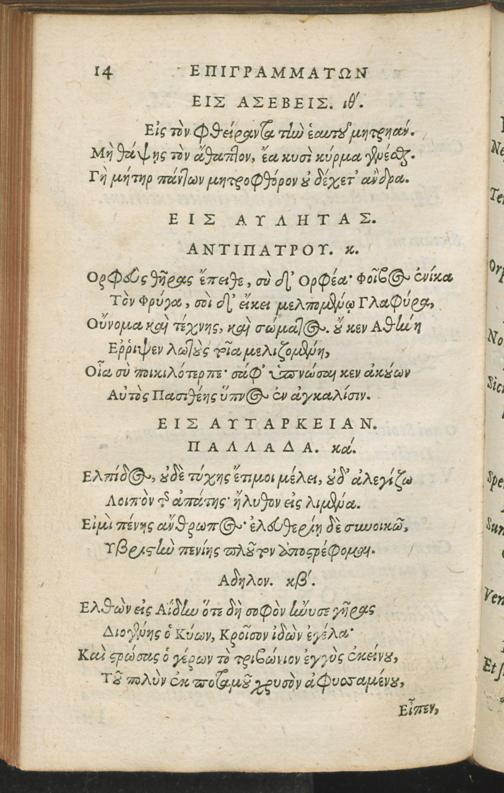 14 ΕΠΙΓΡΑΜΜΑΤΩΝ
ΕΙΣ ΑΣΕΒΕΙΣ. ιθ´.
Εἰς τὸν φθείραντα τὴν ἑαυτοῦ μητρῃάν.
Μὴ θάψῃς τὸν ἄθαπτον, ἔα κυσὶ κύρμα γενέσθαι.
Γῆ μήτηρ πάντων μητροφθόρον οὐ δέχετ' ἄνδρα.
ΕΙΣ ΑΥΛΗΤΑΣ.
ΑΝΤΙΠΑΤΡΟΥ. κ.
Ορφεὺς θῆρας ἔπειθε, σὺ δ' Ορφέα· Φοῖβος ἐνίκα
Τὸν Φρύγα, σοὶ δ' εἴκει μελπομένῳ Γλαφύρα,
Οὔνομα καὶ τέχνης, καὶ σώματος. οὔ κεν Αθήνη
Εῤῥιψεν λωτοὺς τοῖα μελιζομένη,
Οἷα σὺ ποικιλότερπε· σάφ' ὑπνώσαι κεν ἀκούων
Αὐτὸς Πασιθέης ὕπνος ἐν ἀγκαλίσιν.
ΕΙΣ ΑΥΤΑΡΚΕΙΑΝ.
ΠΑΛΛΑΔΑ. κά.
Ελπίδος, οὐδὲ τύχης ἔτι μοι μέλει, οὐδ' ἀλεγίζω
Λοιπὸν τῆς ἀπάτης· ἤλυθον εἰς λιμένα.
Εἰμὶ πένης ἄνθρωπος· ἐλευθερίῃ δὲ συνοικῶ,
Υβριστὴν πενίης πλοῦτον ἀποστρέφομαι.
Αδηλον. κβ´.
Ελθὼν εἰς Αΐδην ὅτε δὴ σοφὸν ἤνυσε γῆρας
Διογένης ὁ Κύων, Κροῖσον ἰδὼν ἐγέλα·
Καὶ στρώσας ὁ γέρων τὸ τριβώνιον ἐγγὺς ἐκείνου,
Τοῦ πολὺν ἐκ ποταμοῦ χρυσὸν ἀφυσσαμένου,
Εἶπεν,